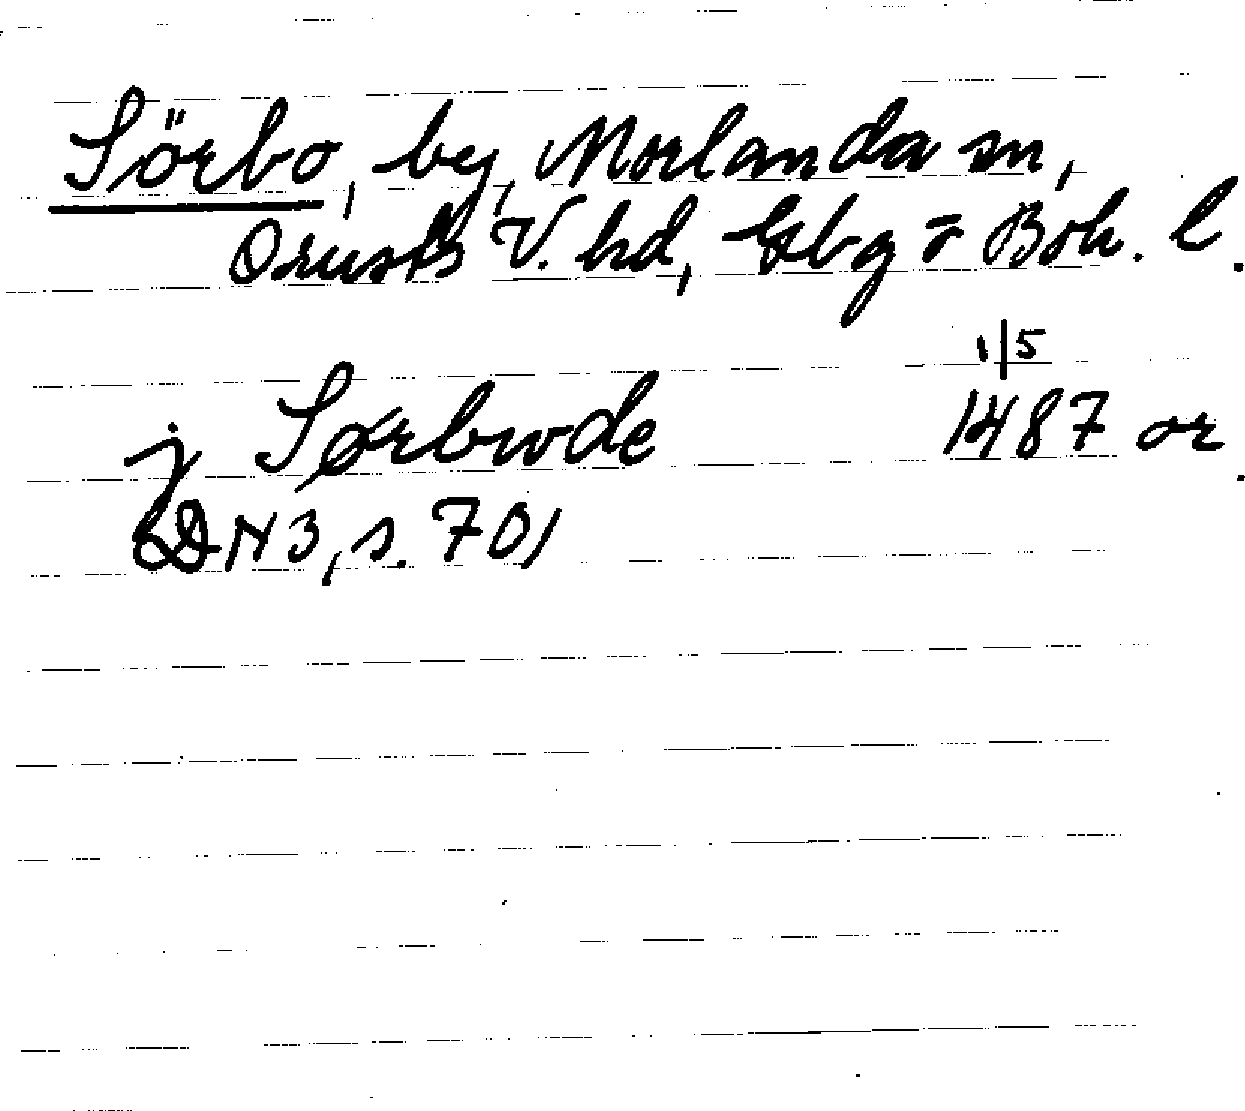 Sörbo, by, Morlanda sn,
Orusts V. hd, Gbg o Boh. l.
1/5
j Sørbwde 1487 or.
DN 3, s. 701